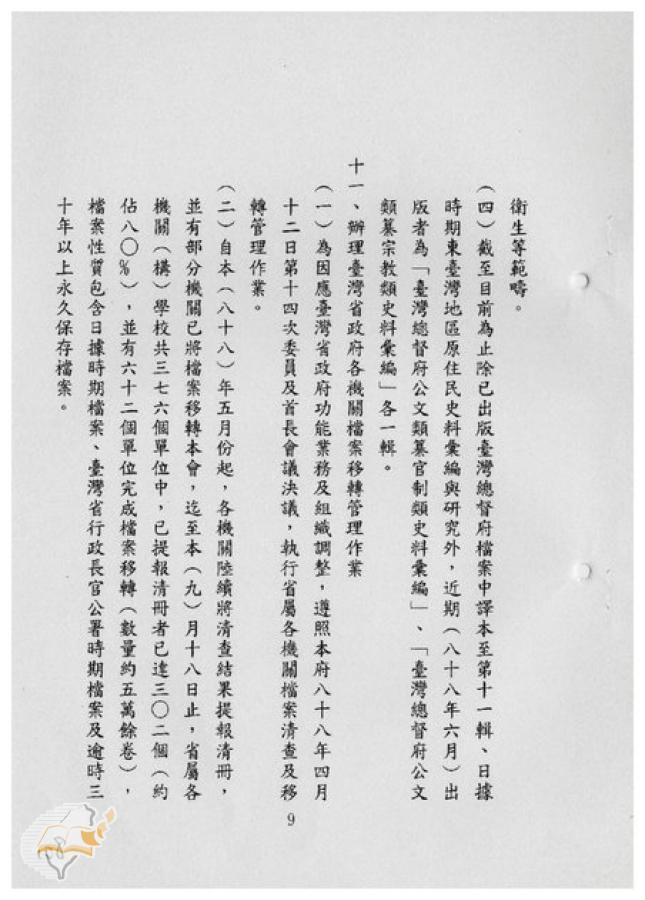 衛生等範疇。
（四）截至目前為止除已出版臺灣總督府檔案中譯本至第十一輯、日據
時期東臺灣地區原住民史料彙編與研究外，近期（八十八年六月）出
版者為「臺灣總督府公文類纂官制類史料彙編」、「臺灣總督府公文
類纂宗教類史料彙編」各一輯。
十一、辦理臺灣省政府各機關檔案移轉管理作業
（一）為因應臺灣省政府功能業務及組織調整，遵照本府八十八年四月
十二日第十四次委員及首長會議決議，執行省屬各機關檔案清查及移
轉管理作業。
（二）自本（八十八）年五月份起，各機關陸續將清查結果提報清冊，
並有部分機關已將檔案移轉本會，迄至本（九）月十八日止，省屬各
機關（構）學校共三七六個單位中，已提報清冊者已達三〇二個（約
佔八〇%），並有六十二個單位完成檔案移轉（數量約五萬餘卷），
檔案性質包含日據時期檔案、臺灣省行政長官公署時期檔案及逾時三
十年以上永久保存檔案。
9